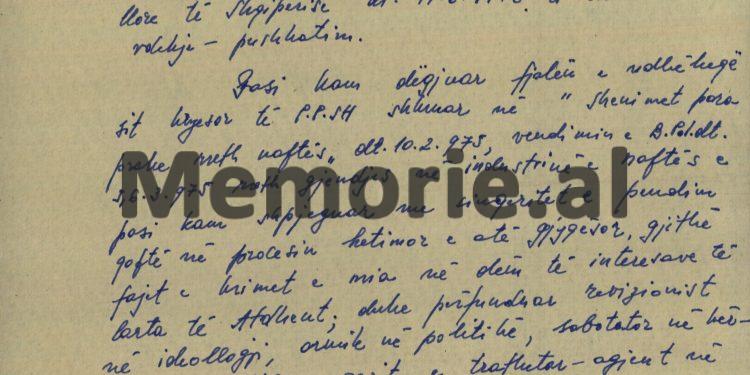 llore të Shqipërisë
vdekje - pushkatim.
Pasi kam dëgjuar fjalën e udhëheqë
sit kryesor të P.P.SH shkruar në "Shenimet para
prake rreth naftës„ dt. 10.2.975, vendimin e B.Pol. dt.
5,6.3.975 rreth gjendjes në industrinë e naftës e
Memorie.al
pasi kam shpjeguar me singeritet e pendim
qoftë në procesin hetimor e atë gjyqësor, gjithë
fajet e krimet e mia në dëm të interesave të
larta të Atdheut; duke përfunduar revizionist
në ideollogji, armik në politikë, sabotator në
trafhtor - agjent në